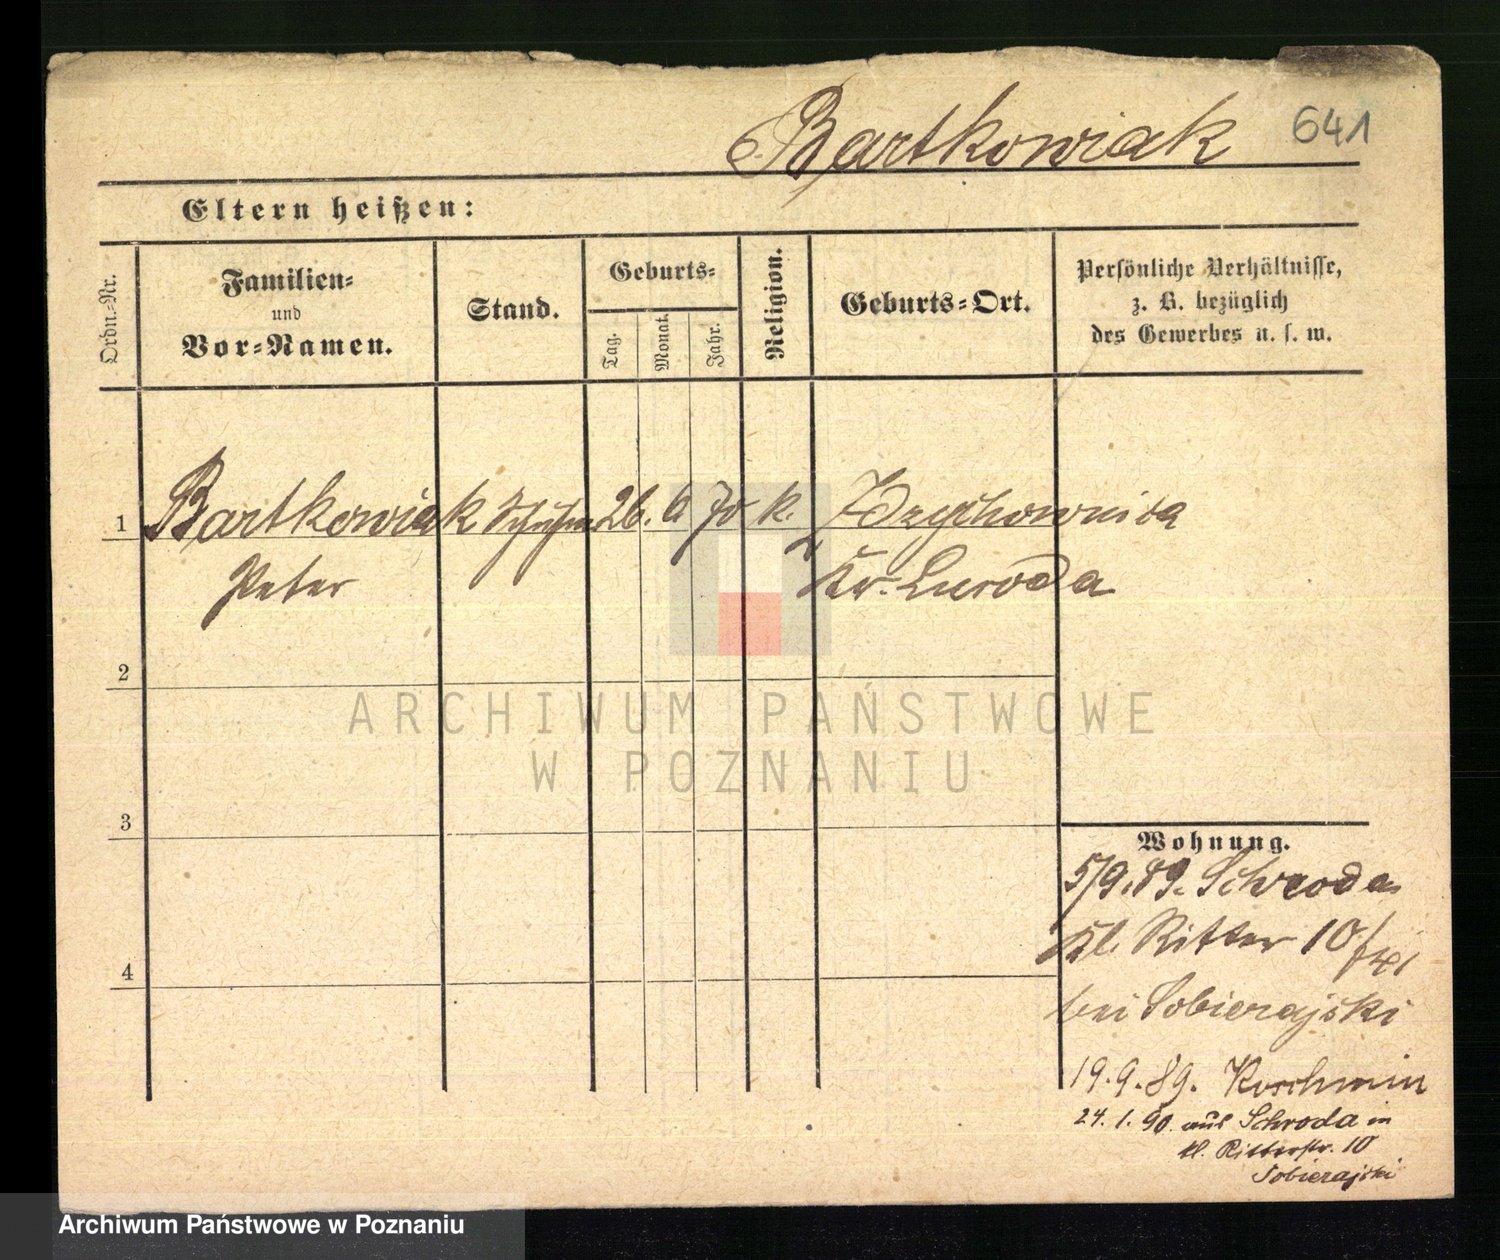 Bartkowiak 641
Eltern heißen:
Ordn.-Nr.
Familien-
und
Vor-Namen.
Stand.
Geburts-
Tag.
Monat.
Jahr.
Religion.
Geburts-Ort.
Persönliche Verhältnisse,
z. B. bezüglich
des Gewerbes u. s. w.
1 Bartkowiak 26. 6. 70 k.
Peter Kr.
2
ARCHIWUM PAŃSTWOWE
W POZNANIU
3
4
Wohnung.
5/9.89. Schroda
Kl. Ritter 10
bei Sobierajski
19.9.89. Koschmin
24.1.90. aus Schroda in
kl. Ritterstr. 10
Sobierajski
Archiwum Państwowe w Poznaniu